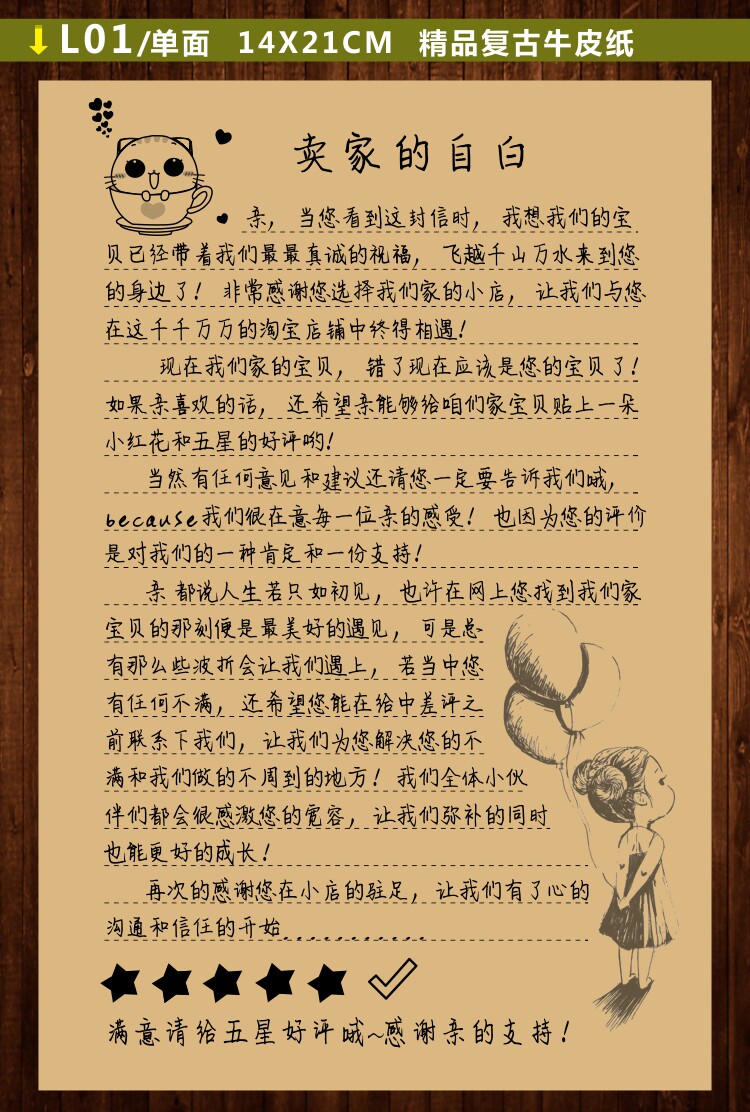 L01/单面 14X21CM 精品复古牛皮纸
卖家的自白
亲， 当您看到这封信时， 我想我们的宝
贝已经带着我们最最真诚的祝福， 飞越千山万水来到您
的身边了！ 非常感谢您选择我们家的小店， 让我们与您
在这千千万万的淘宝店铺中终得相遇！
现在我们家的宝贝， 错了现在应该是您的宝贝了！
如果亲喜欢的话， 还希望亲能够给咱们家宝贝贴上一朵
小红花和五星的好评哟！
当然有任何意见和建议还请您一定要告诉我们哦，
because我们很在意每一位亲的感受！ 也因为您的评价
是对我们的一种肯定和一份支持！
亲 都说人生若只如初见， 也许在网上您找到我们家
宝贝的那刻便是最美好的遇见， 可是总
有那么些波折会让我们遇上， 若当中您
有任何不满， 还希望您能在给中差评之
前联系下我们， 让我们为您解决您的不
满和我们做的不周到的地方！ 我们全体小伙
伴们都会很感激您的宽容， 让我们弥补的同时
也能更好的成长！
再次的感谢您在小店的驻足， 让我们有了心的
沟通和信任的开始............
满意请给五星好评哦~感谢亲的支持！